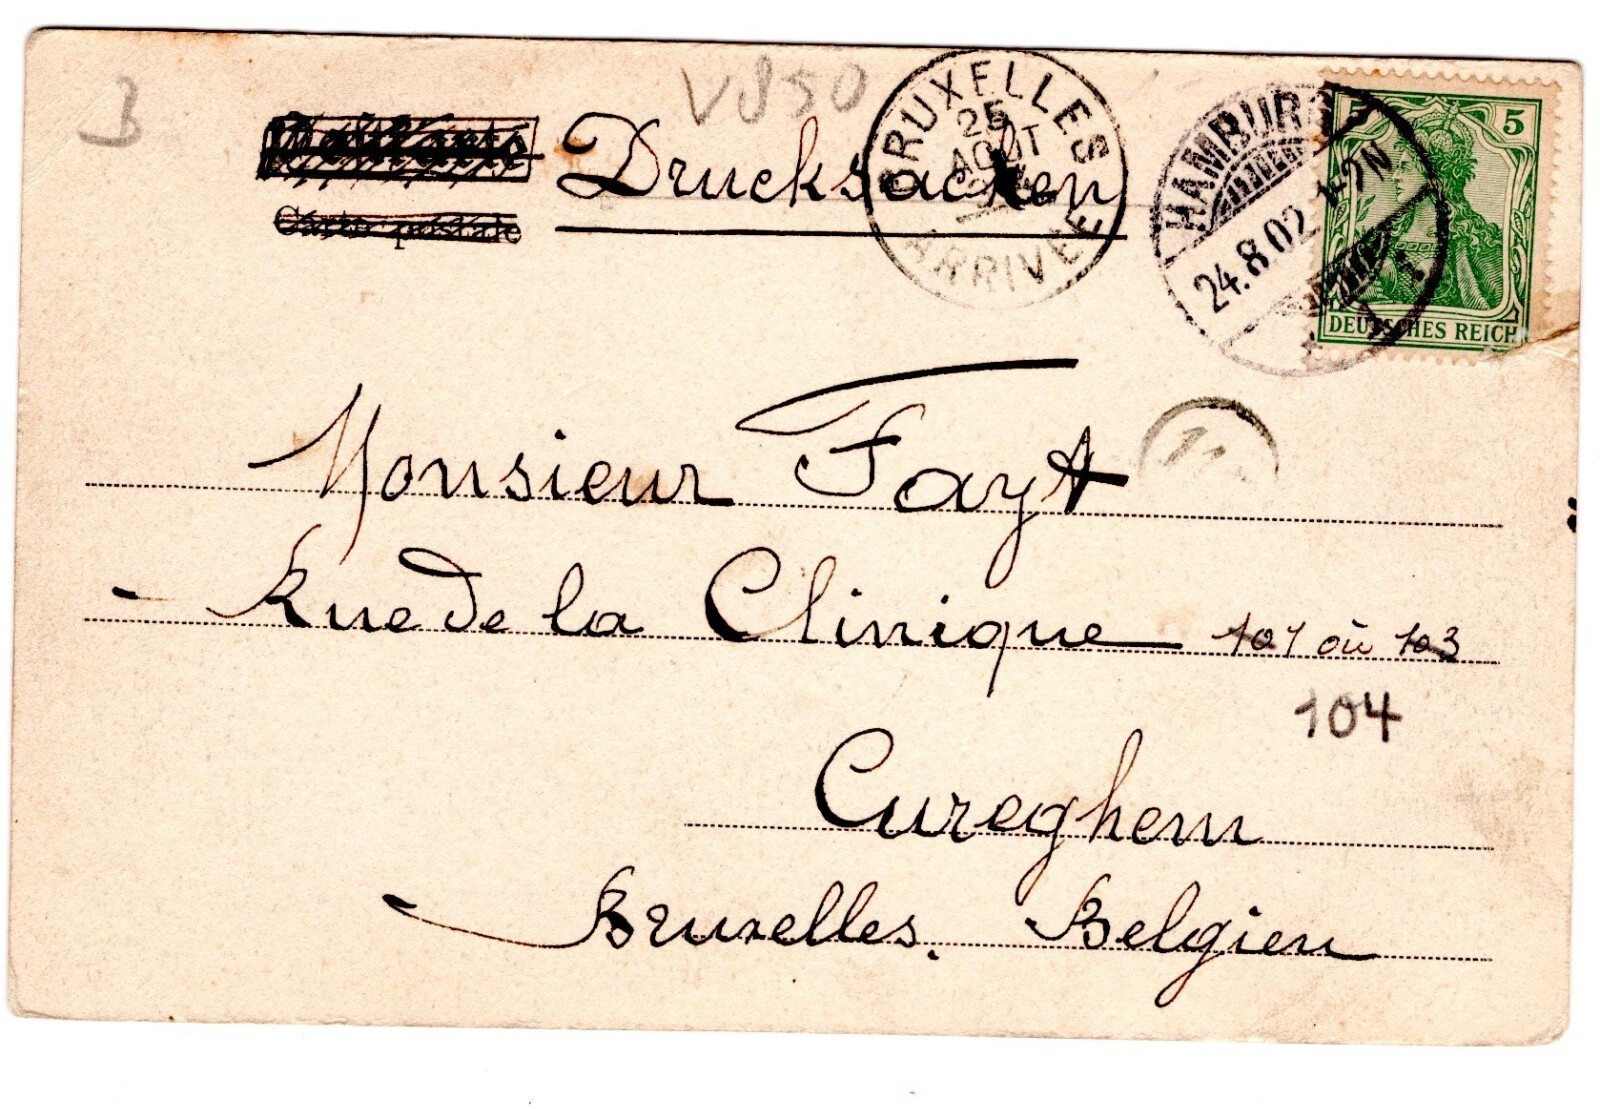 3
V850
Drucksachen
Carte postale
BRUXELLES
25
AOUT
ARRIVEE
HAMBURG
24.8.02 1-2N
* 1
5 5
DEUTSCHES REICH
Monsieur Fayt
Rue de la Clinique 101 où 103
104
Cureghem
Bruxelles. Belgien